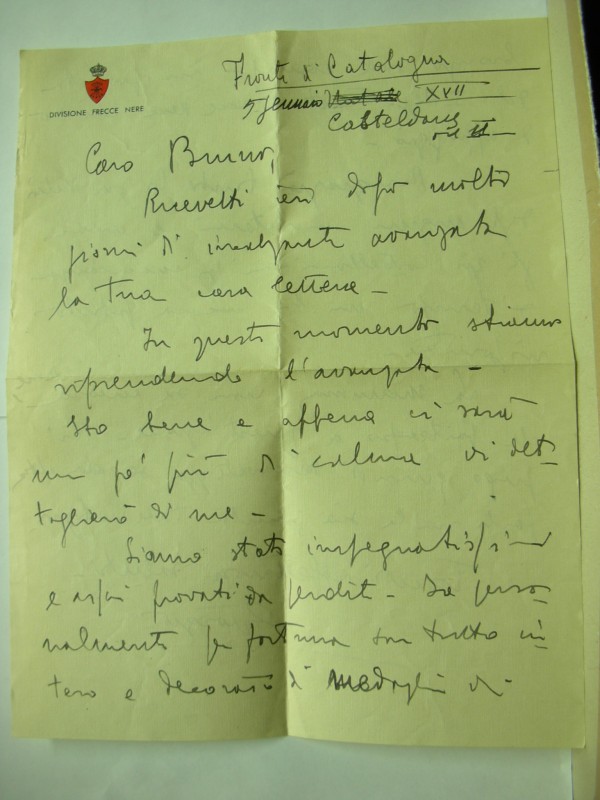 DIVISIONE FRECCE NERE
Fronte d' Catalogna
5 gennaio XVII
Casteldans
Caro Bruno,
Ricevetti ieri dopo molti
giorni di incalzante avanzata
la tua cara lettera –
In questo momento stiamo
riprendendo l'avanzata –
Sto bene e appena ci sarà
un po' più di calma vi det-
taglierò di me –
Siamo stati impegnatissimi
e assai provati da perdite – Io perso-
nalmente per fortuna son tutto in-
tero e decorato di medaglia di